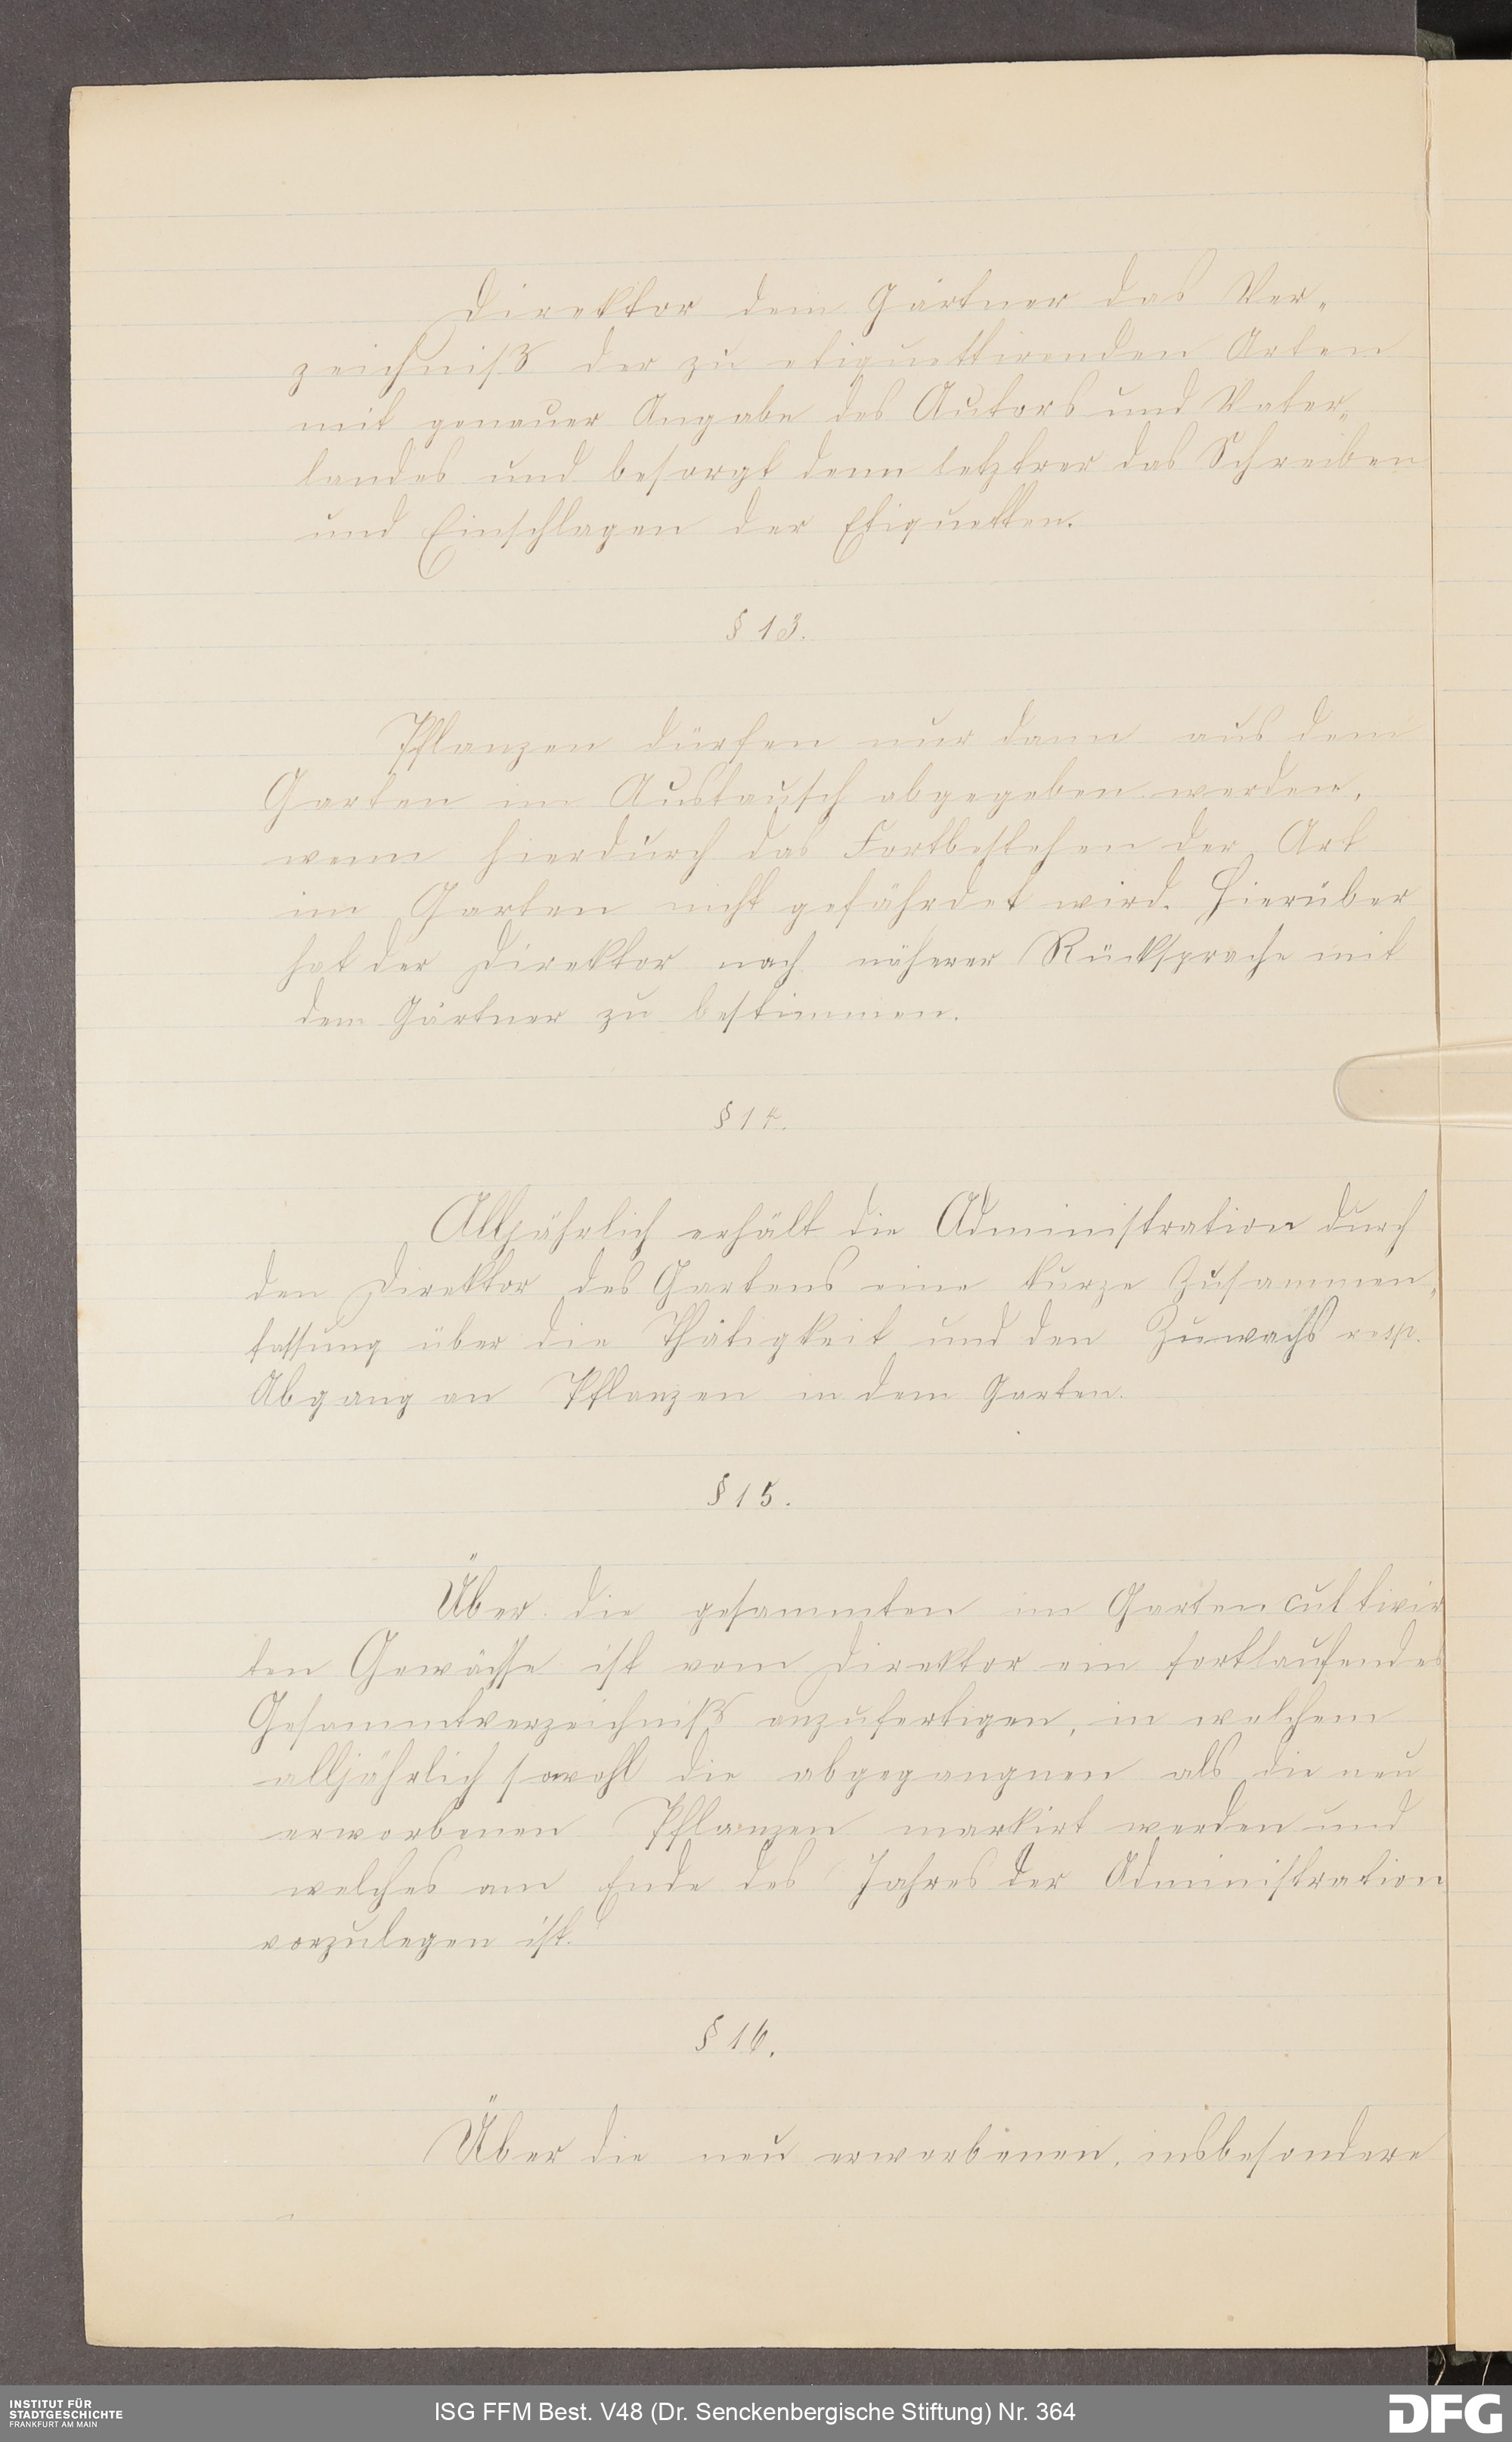 Direktor dem Gärtner das Ver-
zeichniß der zu etiquettirenden Arten
mit genauer Angabe des Autors und Vater-
landes und besorgt denn letztrer das Schreiben
und Einschlagen der Etiquetten.
§ 13.
Pflanzen dürfen nur dann aus dem
Garten im Austausch abgegeben werden,
wenn hierdurch das Fortbestehen der Art
im Garten nicht gefährdet wird. Hierüber
hat der Direktor nach näherer Rücksprache mit
dem Gärtner zu bestimmen.
§ 14.
Alljährlich erhält die Administration durch
den Direktor des Gartens eine kurze Zusammen-
fassung über die Thätigkeit und den Zuwachs resp.
Abgang an Pflanzen in dem Garten.
§ 15.
Über die gesammten im Garten cultivir
ten Gewächse ist vom Direktor ein fortlaufendes
Gesammtverzeichniß anzufertigen, in welchem
alljährlich sowohl die abgegangnen als die neu
erworbenen Pflanzen markirt werden und
welches am Ende des Jahres der Administration
vorzulegen ist.
§ 16.
Über die neu erworbenen, insbesondere
INSTITUT FÜR
STADTGESCHICHTE
FRANKFURT AM MAIN
ISG FFM Best. V48 (Dr. Senckenbergische Stiftung) Nr. 364
DFG